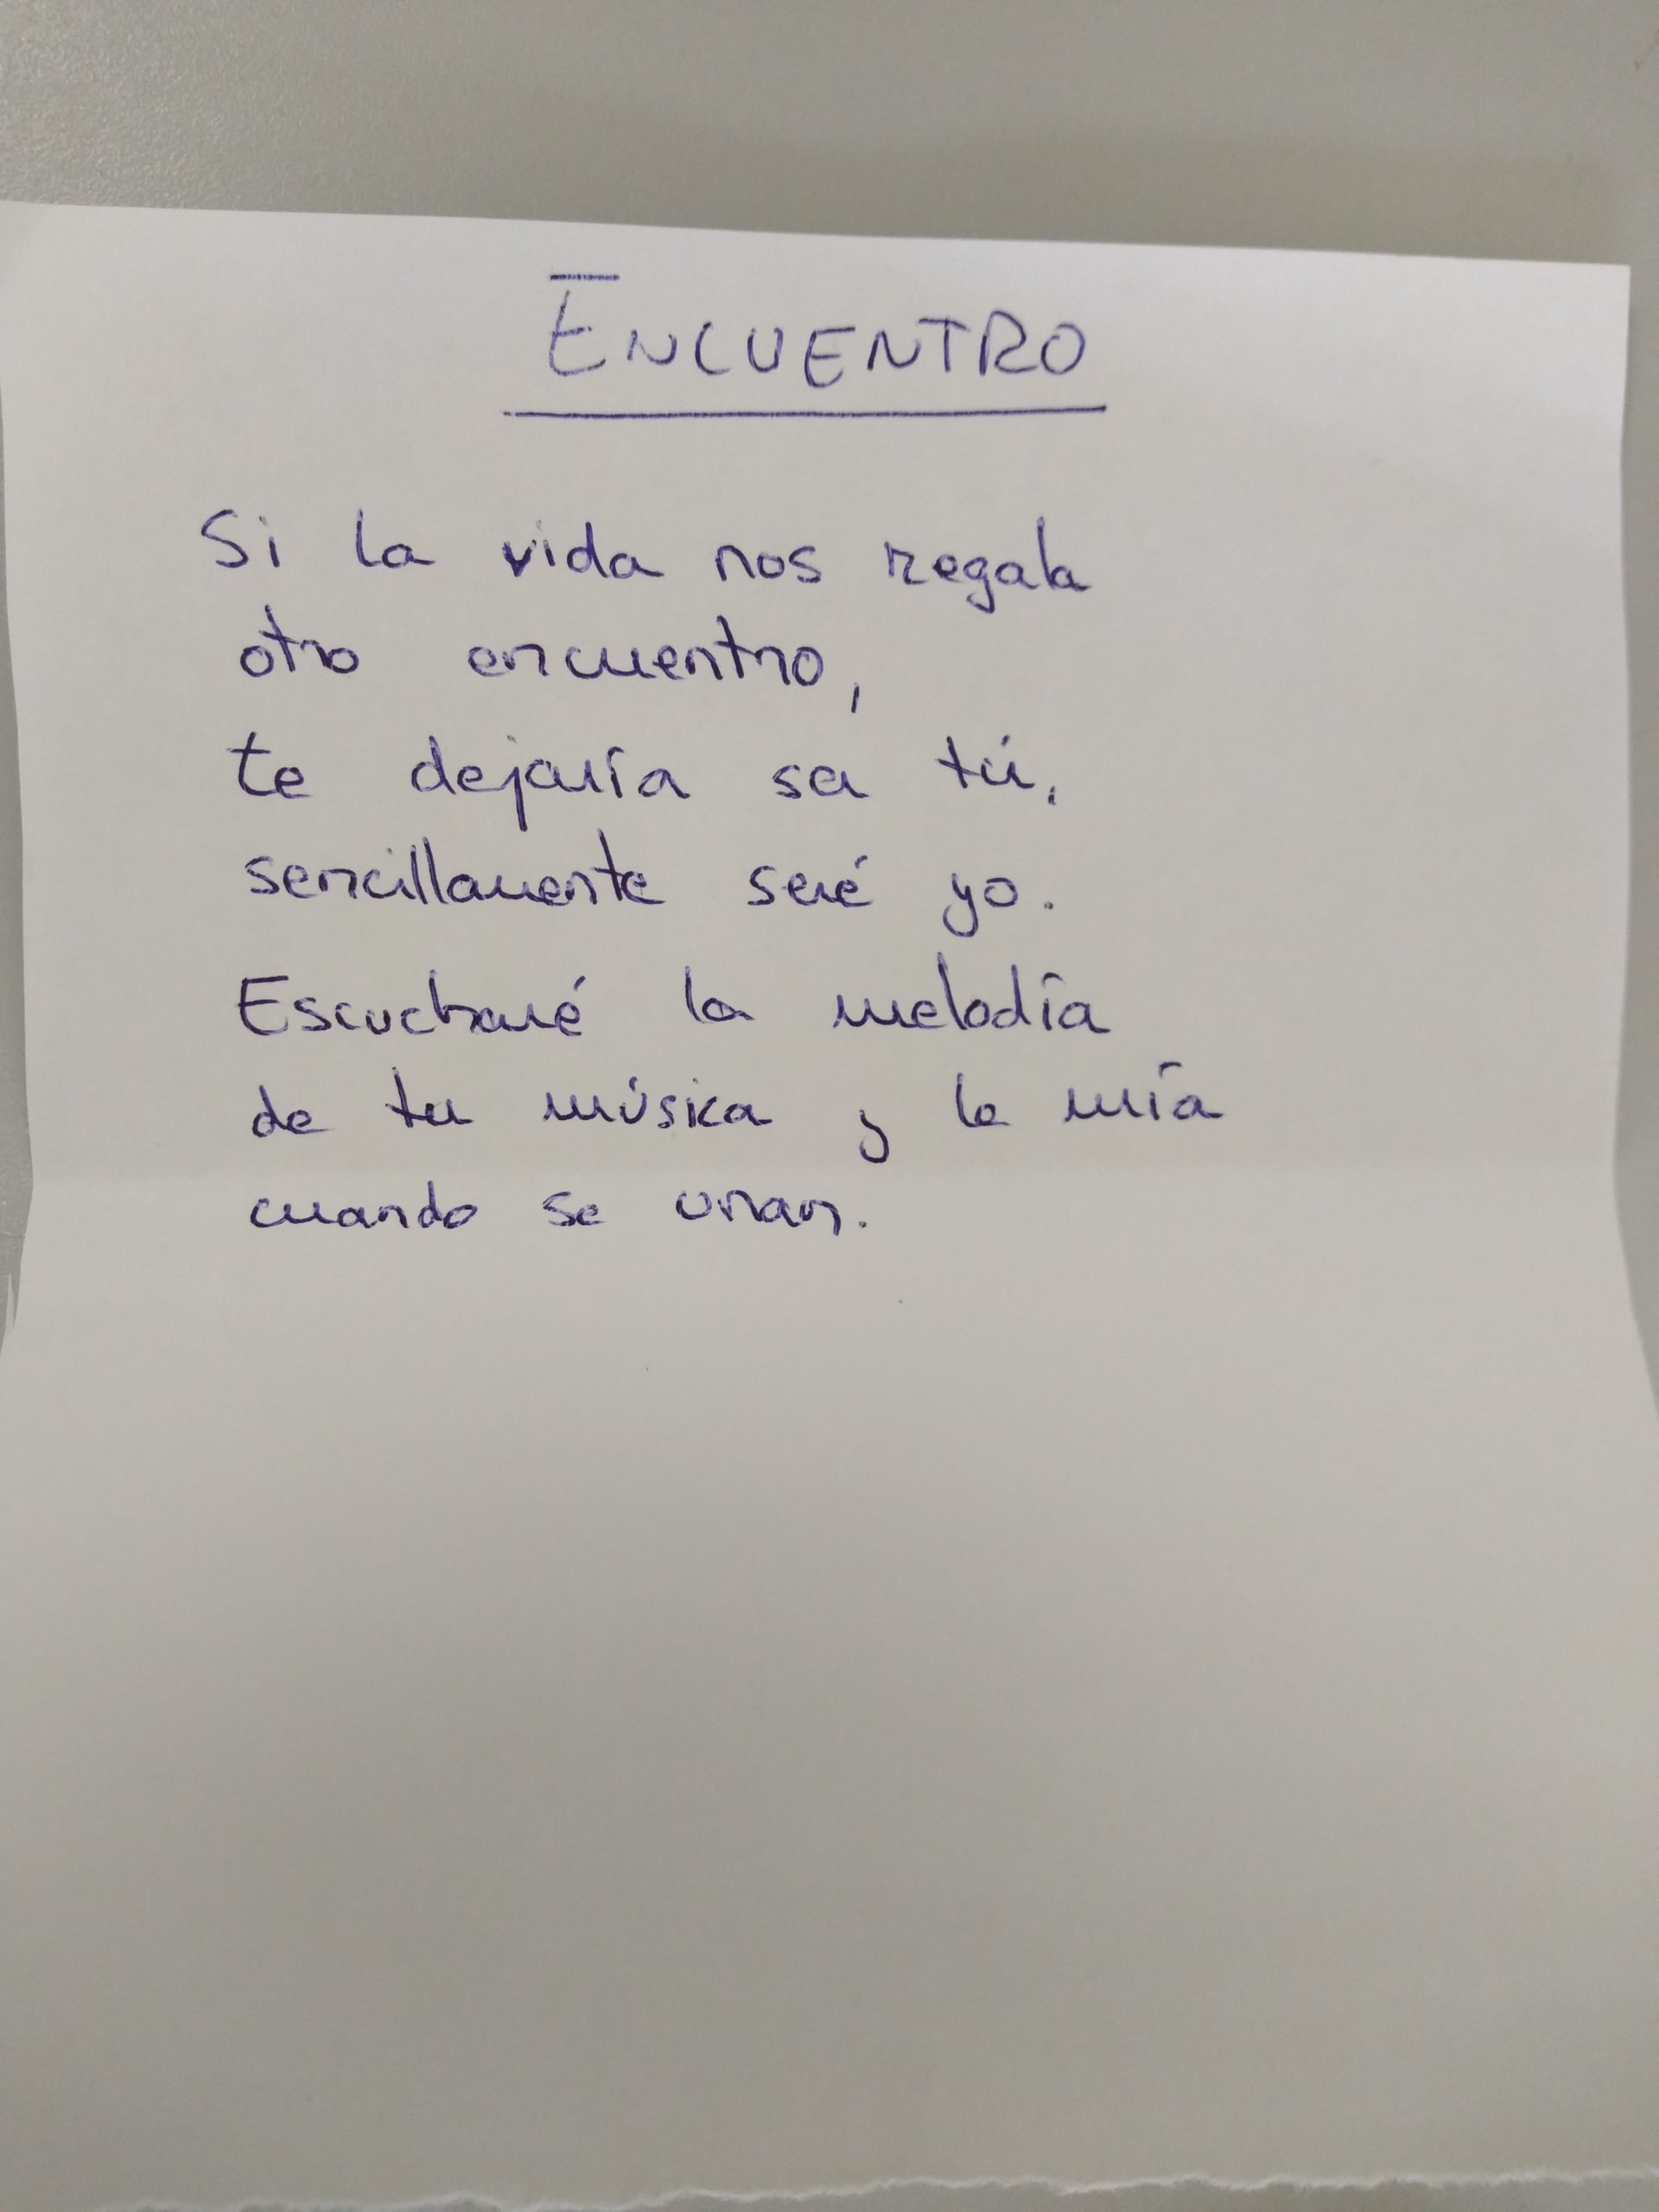 ENCUENTRO
Si la vida nos regala
otro encuentro,
te dejaría ser tú,
sencillamente seré yo.
Escucharé la melodía
de tu música y la mía
cuando se unan.